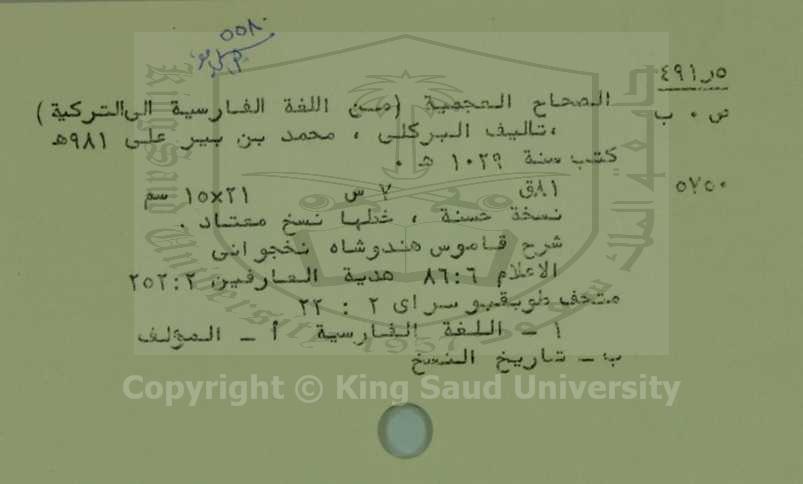 ٥٥٨٠
٤٩١٫٥
ص ٠ ب
الصحاح العجمية (من اللغة الفارسية الى التركية)
، تاليف البركلى ، محمد بن بير على ٩٨١ه
كتب سنة ١٠٢٩ ه ٠
٥٧٥٠
٨١ق ٧ س ١٥x٢١ سم
نسخة حسنة ، خطها نسخ معتاد .
شرح قاموس هندوشاه نخجوانى
الاعلام ٨٦:٦ هدية العارفين ٢٥٢:٢
متحف طوبقبو سراى ٢ : ٢٢
١ - اللغة الفارسية أ - المؤلف
ب - تاريخ النسخ
King Saud University
1957
Copyright © King Saud University